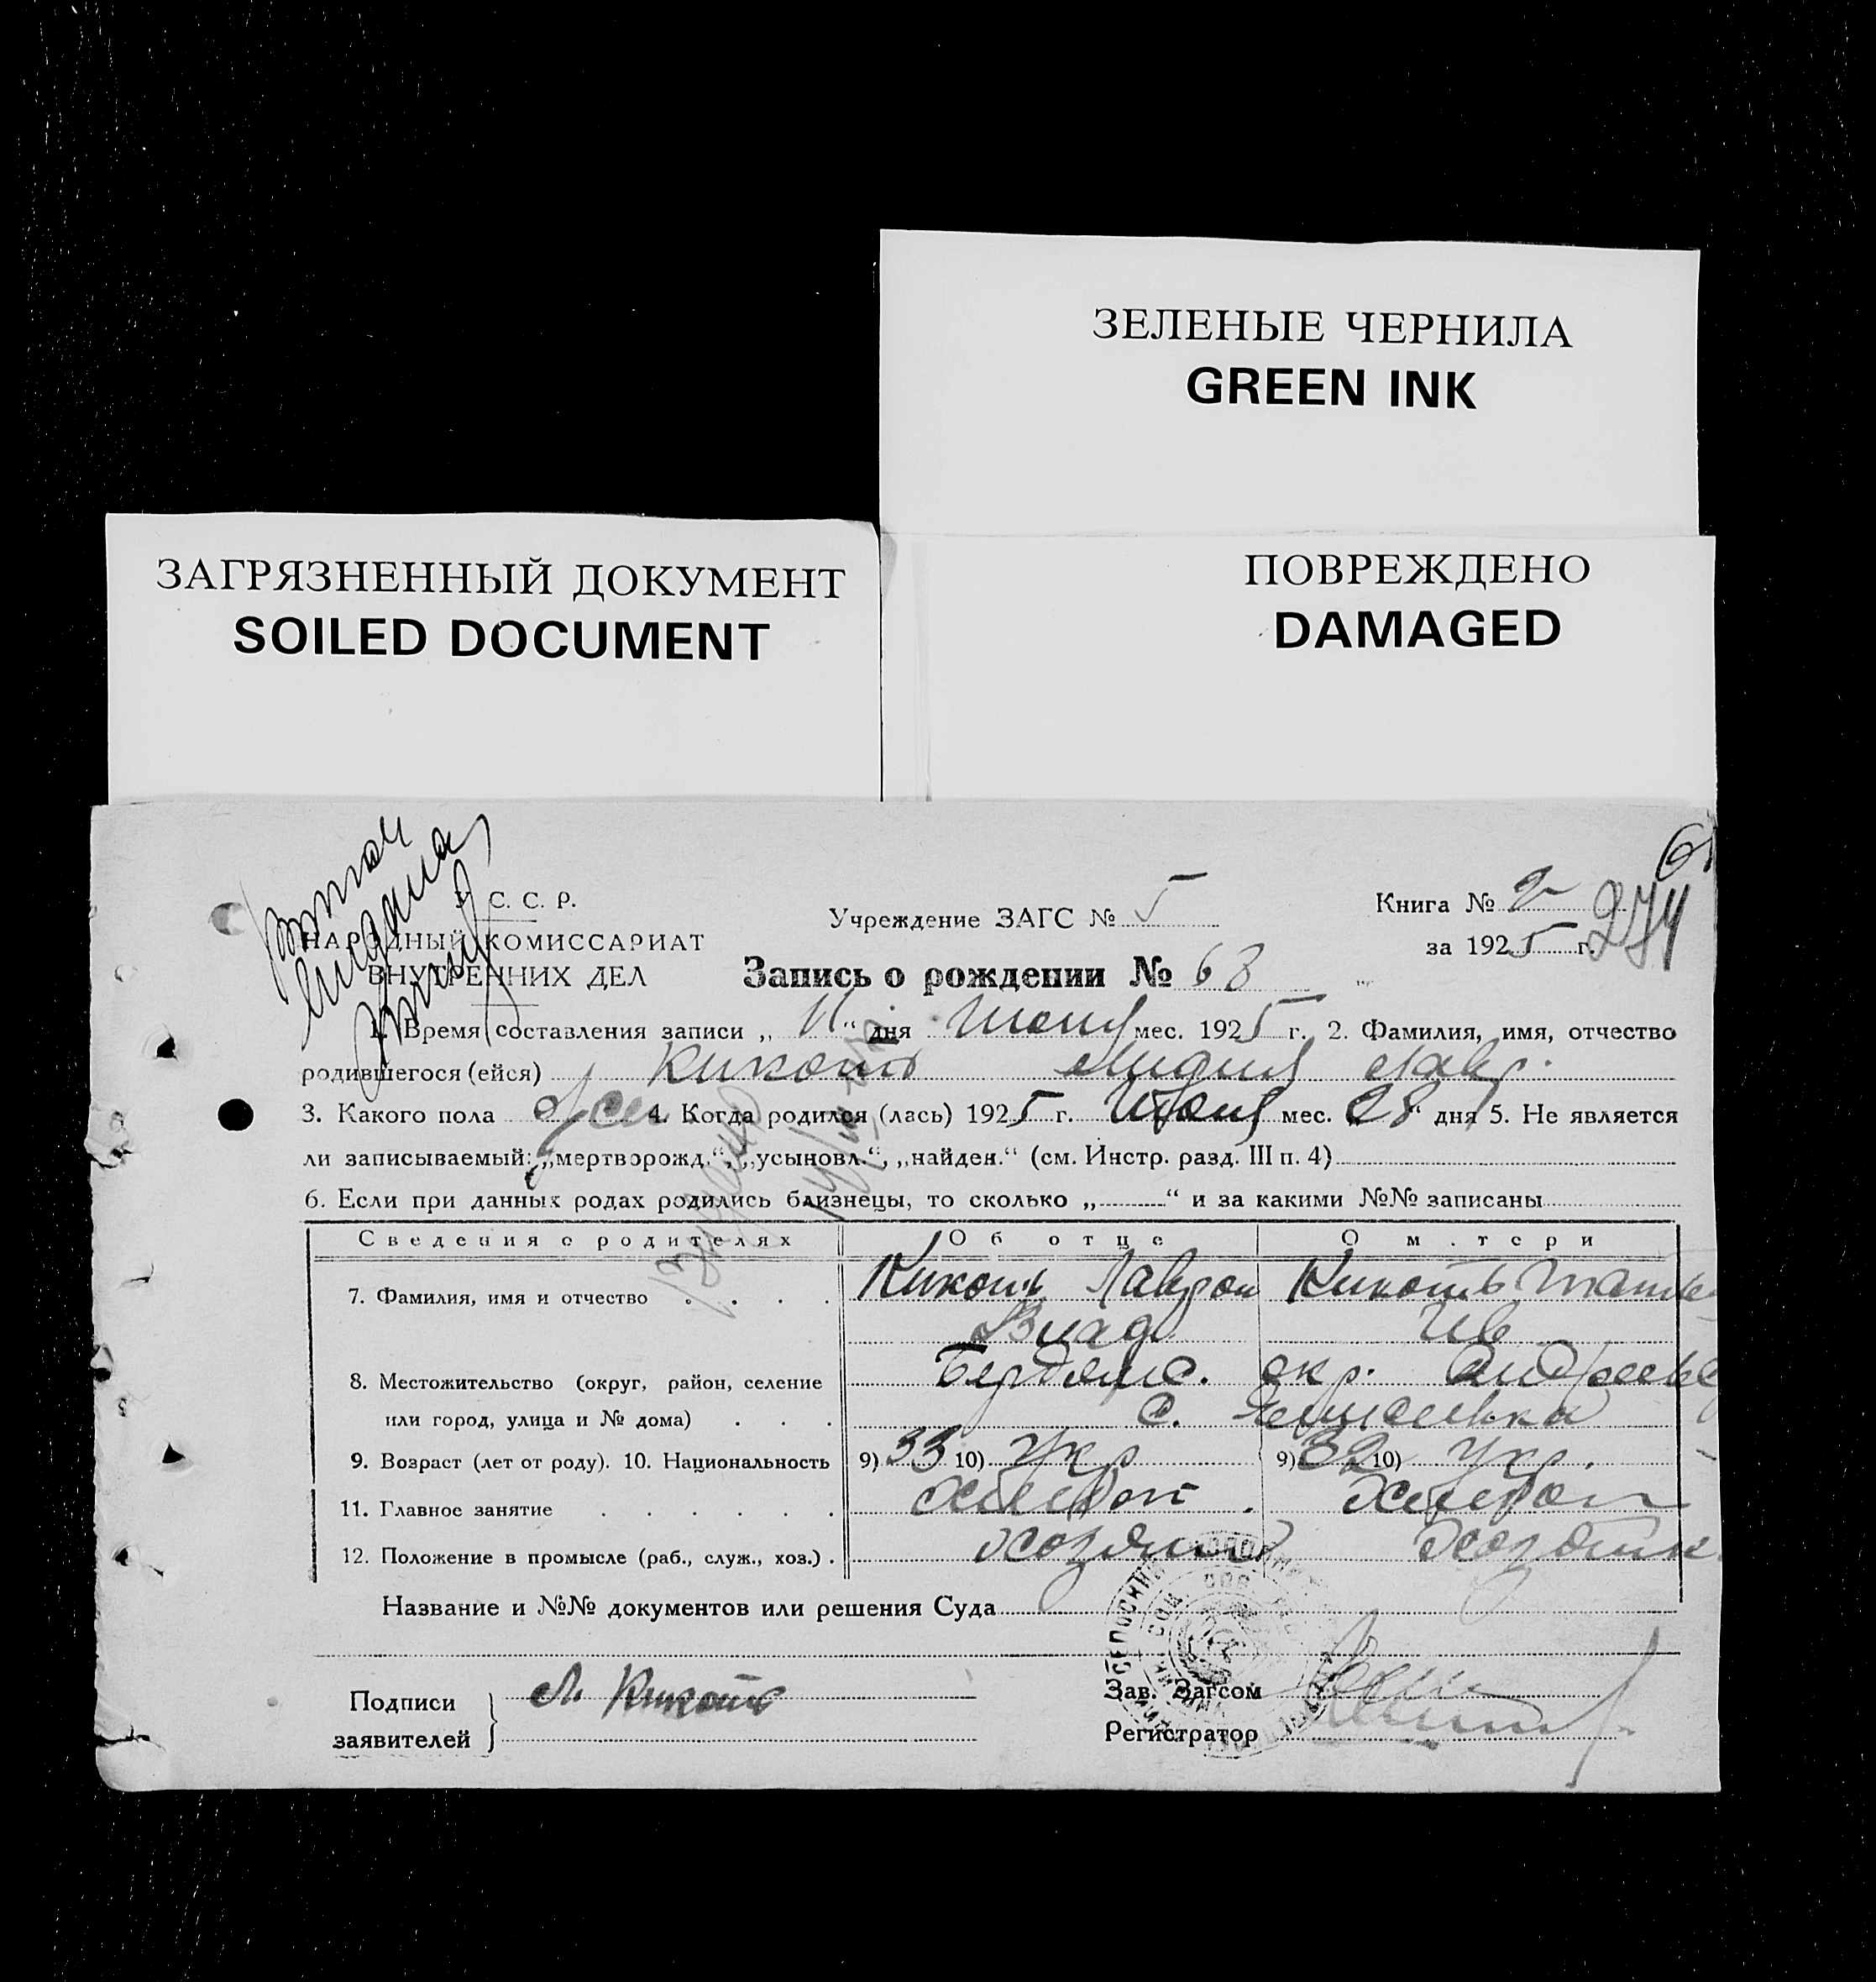 ЗЕЛЕНЫЕ ЧЕРНИЛА
GREEN INK
ЗАГРЯЗНЕННЫЙ ДОКУМЕНТ
SOILED DOCUMENT
ПОВРЕЖДЕНО
DAMAGED
274
У. С. С. Р.
НАРОДНЫЙ КОМИССАРИАТ
ВНУТРЕННИХ ДЕЛ
Учреждение ЗАГС № 5
Книга № 2
за 1925 г.
Запись о рождении № 63
1. Время составления записи „ 11 “ дня мес. 1925 г. 2. Фамилия, имя, отчество
родившегося (ейся) Кикоть Лидия Лавр.
3. Какого пола жен 4. Когда родился (лась) 1925 г. мес. 28 “ дня 5. Не является
ли записываемый: „мертворожд.“, „усыновл.“, „найден.“ (см. Инстр. разд. III п. 4)
6. Если при данных родах родились близнецы, то сколько „ “ и за какими №№ записаны
Сведения о родителях Об отце О м.тери
7. Фамилия, имя и отчество Кикоть Лаврон Кикоть Татья
Ив
8. Местожительство (округ, район, селение Бердянс. окр. Андреевс
или город, улица и № дома) с.
9. Возраст (лет от роду). 10. Национальность 9) 33 10) Укр 9) 32 10) Укр.
11. Главное занятие хлебороб хлебороб
12. Положение в промысле (раб., служ., хоз.) хозяин хозяйка
Название и №№ документов или решения Суда
Подписи заявителей Л. Кикоть
Зав. Загсом
Регистратор